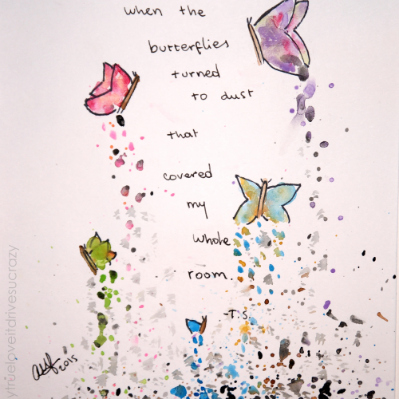 when the
butterflies
turned
to dust
that
covered
my
whole
room
T.S
2015
ytrueloveitdrivesucrazy